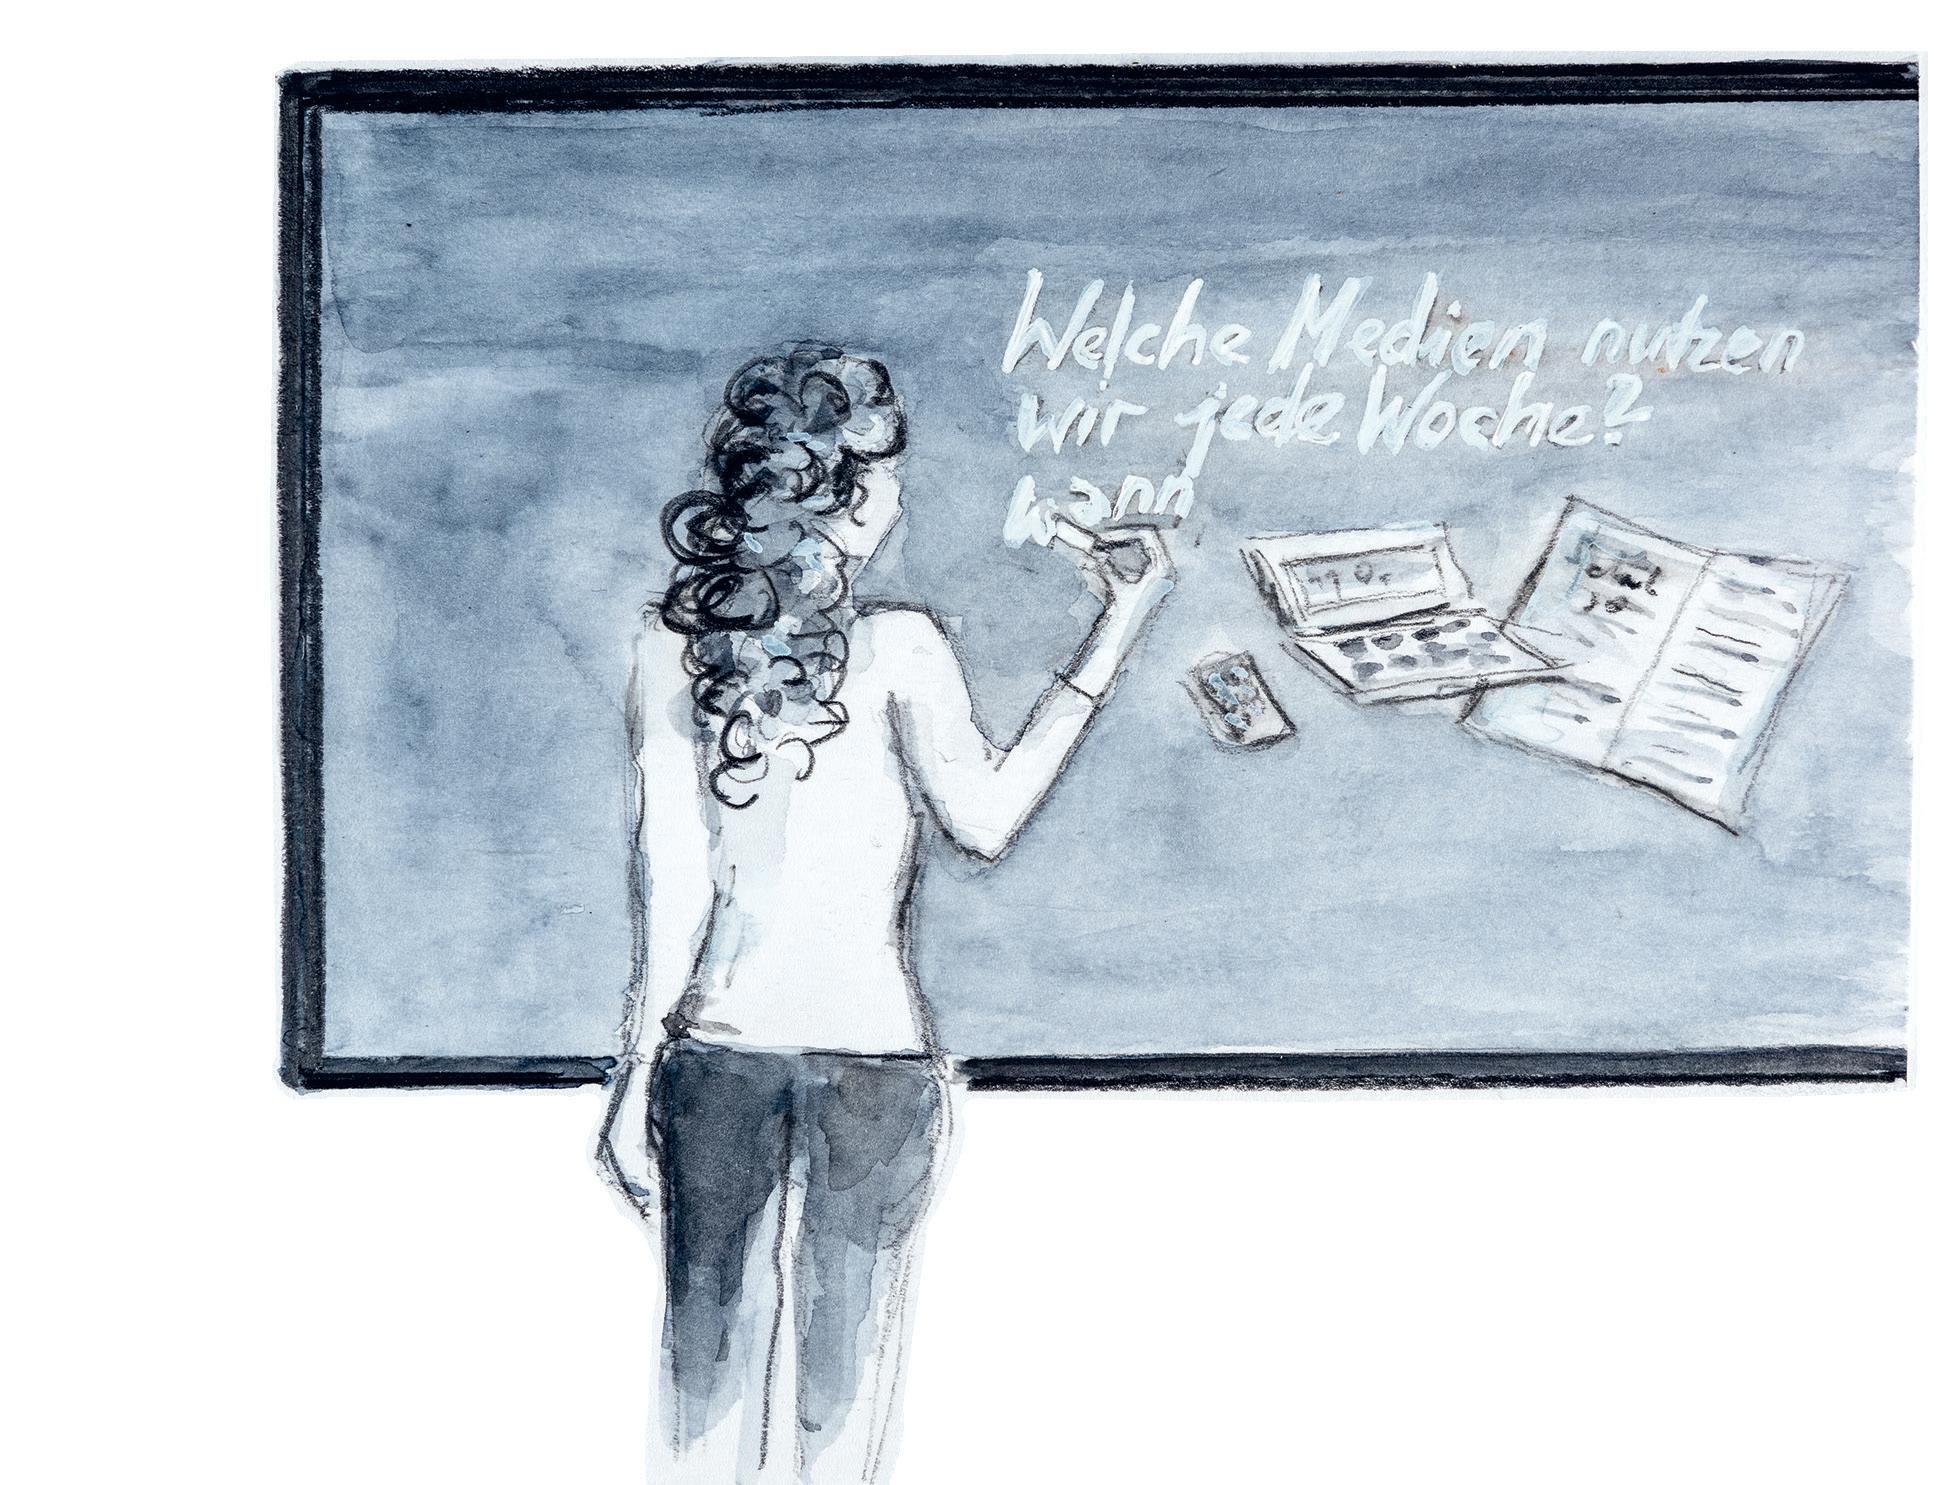 Welche Medien nutzen
wir jede Woche?
wann